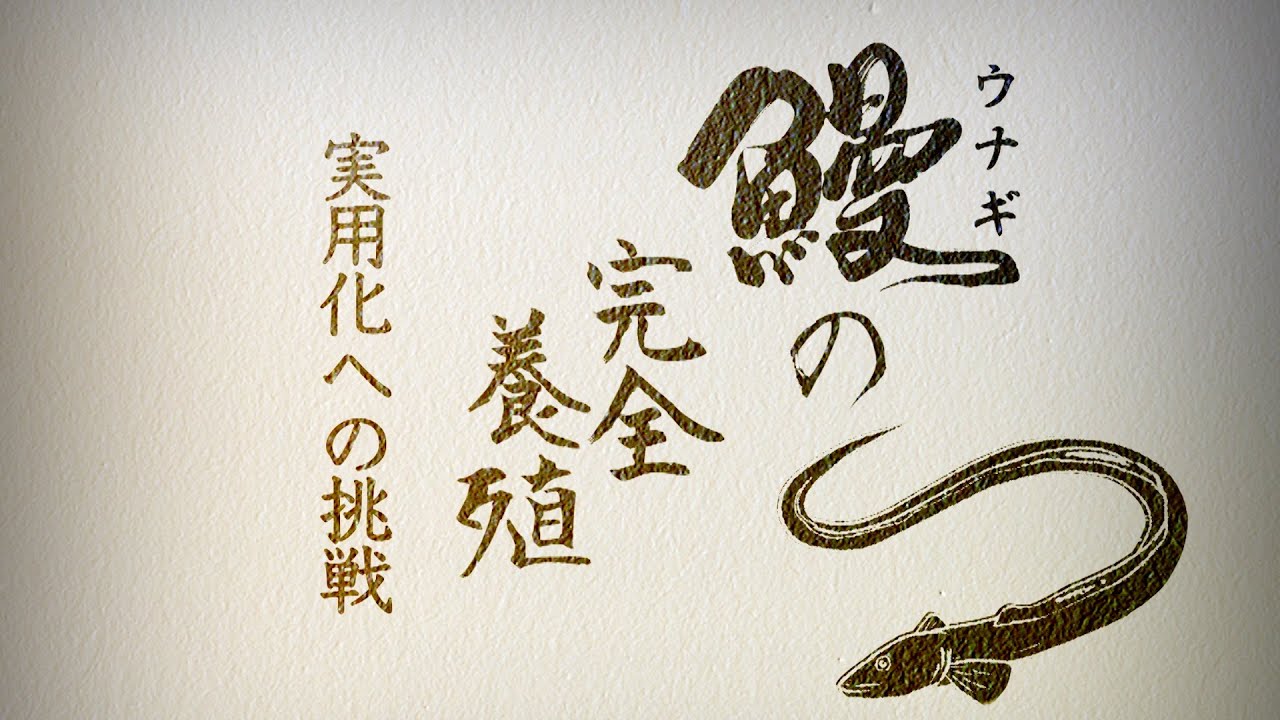 ウナギ
鰻の
完全
養殖
実用化への挑戦